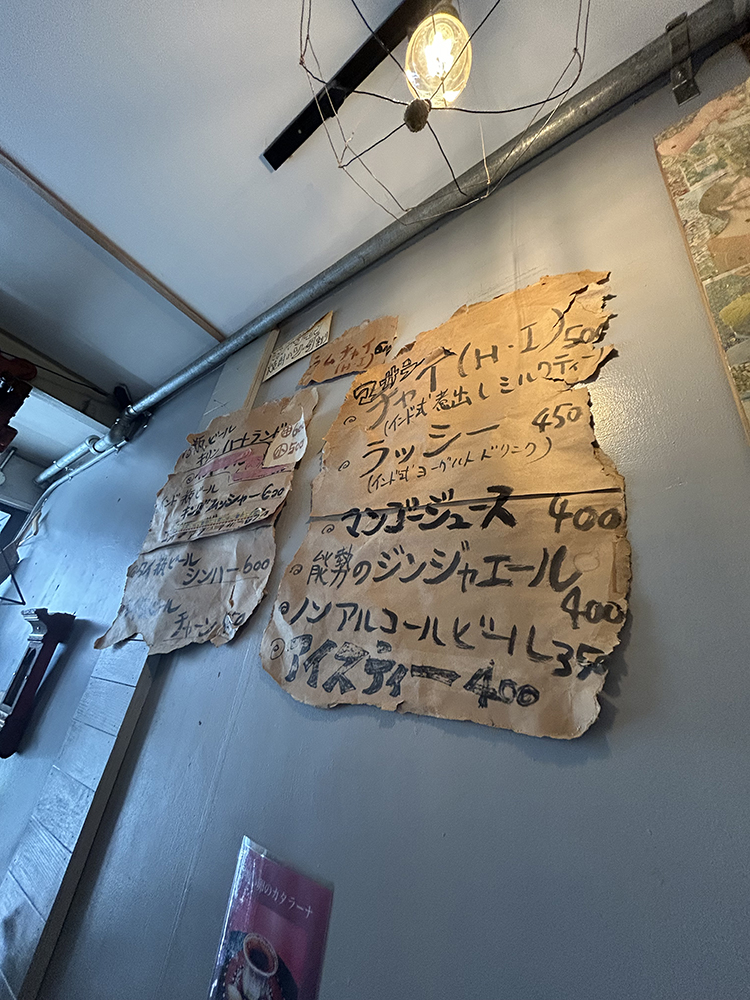 ラムチャイ
(H・I)
チャイ(H・I) 500
(インド式煮出しミルクティー)
ラッシー 450
(インド式ヨーグルトドリンク)
マンゴージュース 400
能勢のジンジャエール
400
ノンアルコールビール 350
アイスティー 400
瓶ビール
キリンハートランド
500
瓶ビール
フィッシャー 600
タイ瓶ビール
シンハー 600
ビール
チャーン
卵のカタラーナ